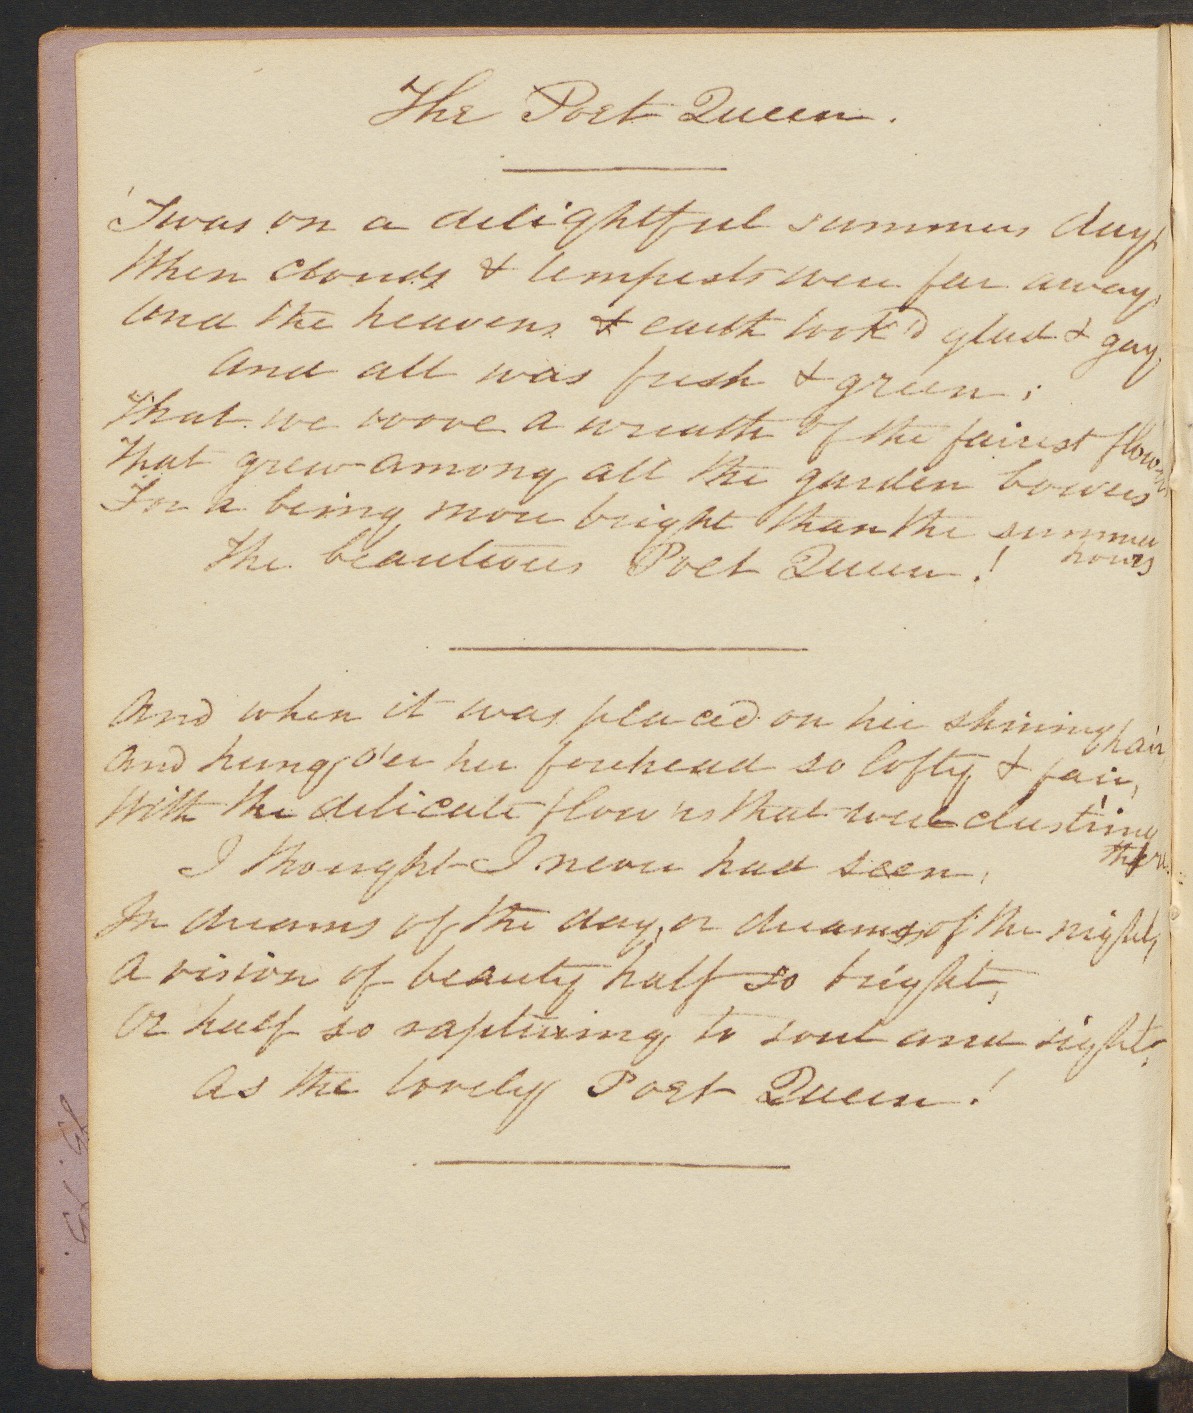 The Poet Queen.
'Twas on a delightful summer day,
When clouds & tempests were far away,
And the heavens & earth look'd glad & gay,
And all was fresh & green;
That we wove a wreath of the fairest flowers
That grew among all the garden bowers
For a being more bright than the summer
hours
The beauteous Poet Queen!
And when it was placed on her shining hair
And hung o'er her forehead so lofty & fair,
With the delicate flow'rs that were clust'ring
there.
I thought I never had seen,
In dreams of the day, or dreams of the night,
A vision of beauty half so bright,
Or half so rapturing to soul and sight,
As the lovely Poet Queen!